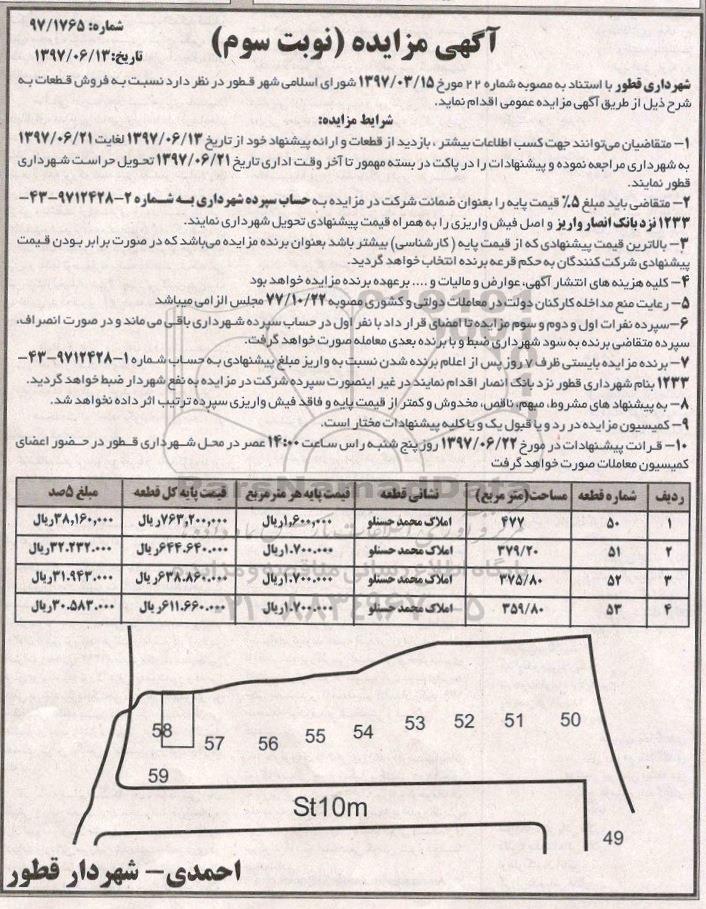 شماره: ۹۷/۱۷۶۵
آگهی مزایده (نوبت سوم)
تاریخ: ۱۳۹۷/۰۶/۱۳
شهرداری قطور با استناد به مصوبه شماره ۲۲ مورخ ۱۳۹۷/۰۳/۱۵ شورای اسلامی شهر قطور در نظر دارد نسبت به فروش قطعات به
شرح ذیل از طریق آگهی مزایده عمومی اقدام نماید.
شرایط مزایده:
۱- متقاضیان می‌توانند جهت کسب اطلاعات بیشتر ، بازدید از قطعات و ارائه پیشنهاد خود از تاریخ ۱۳۹۷/۰۶/۱۳ لغایت ۱۳۹۷/۰۶/۲۱
به شهرداری مراجعه نموده و پیشنهادات را در پاکت در بسته مهمور تا آخر وقت اداری تاریخ ۱۳۹۷/۰۶/۲۱ تحویل حراست شهرداری
قطور نمایند.
۲- متقاضی باید مبلغ ۵٪ قیمت پایه را بعنوان ضمانت شرکت در مزایده به حساب سپرده شهرداری به شماره ۲-۹۷۱۲۴۲۸-۴۳-
۱۲۳۳ نزد بانک انصار واریز و اصل فیش واریزی را به همراه قیمت پیشنهادی تحویل شهرداری نمایند.
۳- بالاترین قیمت پیشنهادی که از قیمت پایه ( کارشناسی) بیشتر باشد بعنوان برنده مزایده می‌باشد که در صورت برابر بودن قیمت
پیشنهادی شرکت کنندگان به حکم قرعه برنده انتخاب خواهد گردید.
۴- کلیه هزینه های انتشار آگهی، عوارض و مالیات و .... برعهده برنده مزایده خواهد بود
۵- رعایت منع مداخله کارکنان دولت در معاملات دولتی و کشوری مصوبه ۷۷/۱۰/۲۲ مجلس الزامی میباشد
۶-سپرده نفرات اول و دوم و سوم مزایده تا امضای قرار داد با نفر اول در حساب سپرده شهرداری باقی می ماند و در صورت انصراف،
سپرده متقاضی برنده به سود شهرداری ضبط و با برنده بعدی معامله صورت خواهد گرفت.
۷- برنده مزایده بایستی ظرف ۷ روز پس از اعلام برنده شدن نسبت به واریز مبلغ پیشنهادی به حساب شماره ۱-۹۷۱۲۴۲۸-۴۳-
۱۲۳۳ بنام شهرداری قطور نزد بانک انصار اقدام نمایند در غیر اینصورت سپرده شرکت در مزایده به نفع شهردار ضبط خواهد گردید.
۸- به پیشنهاد های مشروط، مبهم، ناقص، مخدوش و کمتر از قیمت پایه و فاقد فیش واریزی سپرده ترتیب اثر داده نخواهد شد.
۹- کمیسیون مزایده در رد و یا قبول یک و یا کلیه پیشنهادات مختار است.
۱۰- قرائت پیشنهادات در مورخ ۱۳۹۷/۰۶/۲۲ روز پنج شنبه راس ساعت ۱۴:۰۰ عصر در محل شهرداری قطور در حضور اعضای
کمیسیون معاملات صورت خواهد گرفت
ردیف شماره قطعه مساحت(متر مربع) نشانی قطعه قیمت پایه هر متر مربع قیمت پایه کل قطعه مبلغ ۵صد
۱ ۵۰ ۴۷۷ املاک محمد حسنلو ۱,۶۰۰,۰۰۰ریال ۷۶۳,۲۰۰,۰۰۰ریال ۳۸,۱۶۰,۰۰۰ریال
۲ ۵۱ ۳۷۹/۲۰ املاک محمد حسنلو ۱.۷۰۰.۰۰۰ریال ۶۴۴.۶۴۰.۰۰۰ریال ۳۲.۲۳۲.۰۰۰ریال
۳ ۵۲ ۳۷۵/۸۰ املاک محمد حسنلو ۱.۷۰۰.۰۰۰ریال ۶۳۸.۸۶۰.۰۰۰ریال ۳۱.۹۴۳.۰۰۰ریال
۴ ۵۳ ۳۵۹/۸۰ املاک محمد حسنلو ۱.۷۰۰.۰۰۰ریال ۶۱۱.۶۶۰.۰۰۰ریال ۳۰.۵۸۳.۰۰۰ریال
58 57 56 55 54 53 52 51 50
59
St10m
49
احمدی- شهردار قطور
ParsNamadData
پایگاه اطلاع رسانی مناقصه و مزایده